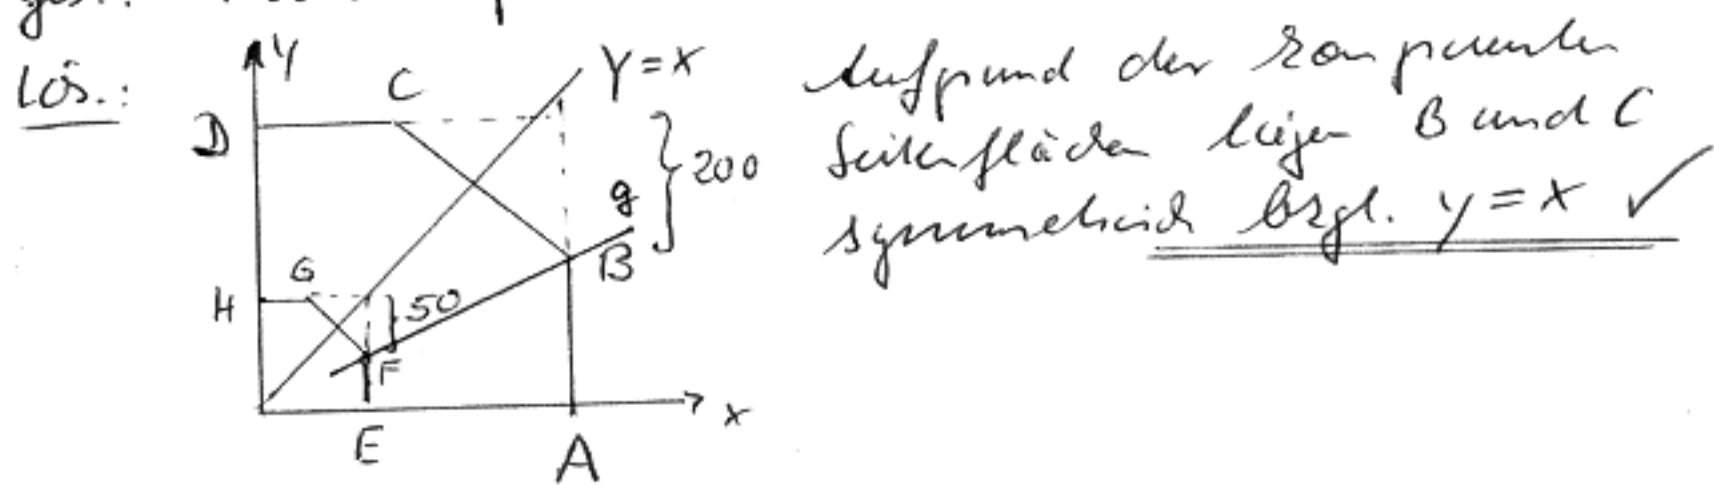 ges.:
Lös.:
Y
Y = X
C
D
200
g
B
G
H
50
F
x
E
A
Aufgrund der kongruenten
Seitenflächen liegen B und C
symmetrisch bzgl. y = x ✓